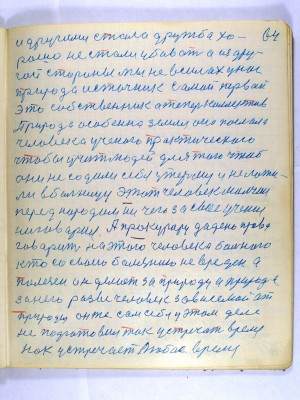 64
и другими стала дружба хо-
рошо не стали убивать а из дру-
гой стороны мы не в силах у нас
природа источник самой первай
это собственник а теперь коллектив
Природа особенно земли она послала
человека ученого практического
чтобы учить людей для того чтоб
они не садили себя утюрму и не ложи-
ли в больницу этот человек молчит
перед народом он ни чего за свае учение
ни говарил. А прокурору дадено право
говарить на этого человека больного
кто со своею болезнию не вреден а
полезен он делает за природу и природа
за него разве человек зависемой от
природы он же сам себя у этом деле
не подготовил так устречать время
как устречает Любое время